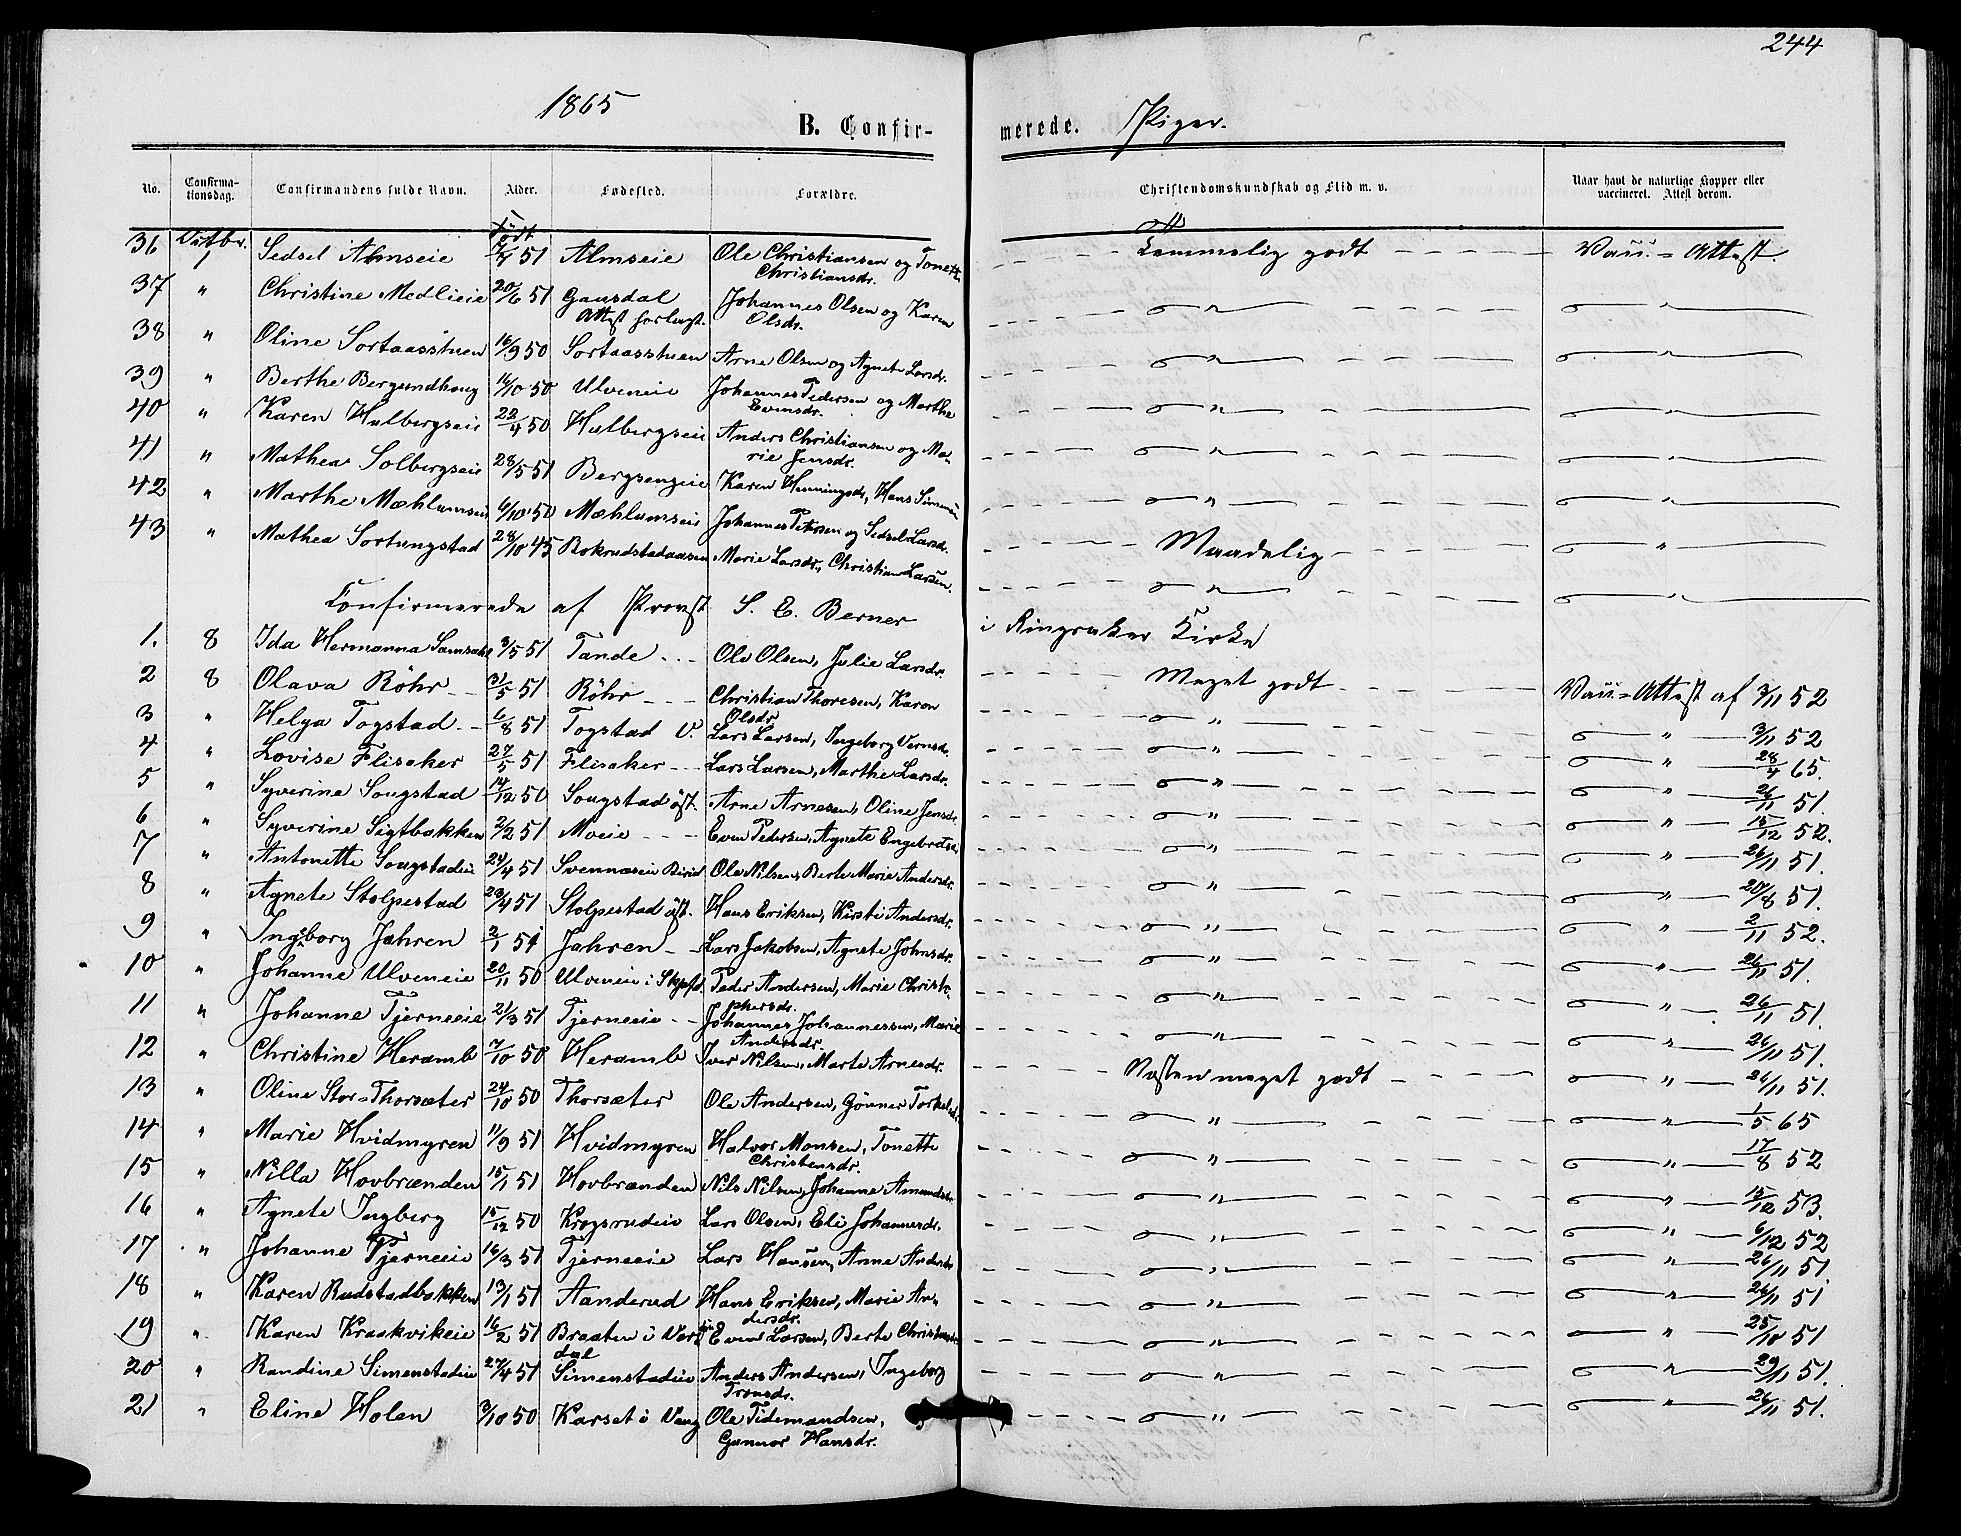 244
1865
B. Confirmerede. Piger.
No. Confirmationsdag. Confirmandens fulde Navn. Alder. Fødested. Forældre. Christendomskundskab og Flid m. v. Naar havt de naturlige Kopper eller vaccineret. Attest derom.
Født
36 1 Sedsel Almseie 51 Almseie Ole Christiansen og Tonette Christiansdr. Temmelig godt Vacc.-Attest.
37 " Christine Medlieie 20/6 51 Gausdal Attest forlagt. Johannes Olsen og Karen Olsdr. " "
38 " Oline Sortaasstuen 16/9 50 Sortaasstuen Arne Olsen og Agnete Larsdr. " "
39 " Berthe Bergundhaug 16/10 50 Ulveneie Johannes Pedersen og Marthe Evensdr. " "
40 " Karen Hulbergseie 22/4 50 Hulbergseie Anders Christiansen og Marie Jensdr. " "
41 " Mathea Solbergseie 28/5 51 Bergsengeie Karen Henningsdr., Hans Simensen " "
42 " Marthe Mæhlumseie 6/10 50 Mæhlumseie Johannes Petersen og Sedsel Larsdr. Maadelig "
43 " Mathea Sortungstad 28/10 45 Bokrudstadaasen Marie Larsdr., Christian Larsen. " "
Confirmerede af Provst S. E. Berner i Ringsaker Kirke
1. 8 Ida Hermanna 3/5 51 Tande Ole Olsen, Julie Larsdr. Meget godt Vacc.-Attest af 3/11 52
2 8 Olava Röhr 31/5 51 Röhr Christian Thoresen, Karen Olsdr. " " 3/11 52
3 " Helga Togstad 6/8 51 Togstad V. Lars Larsen, Ingeborg " " 28/4 65.
4 " Lovise Flisaker 27/5 51 Flisaker Lars Larsen, Marthe Larsdr. " " 26/11 51.
5 " Syverine Sougstad 14/12 50 Sougstad öst. Arne Arnesen, Oline Jensdr. " " 15/12 52.
6 " Syverine Sigtbakken 2/2 51 Moeie Even Pedersen, Agnete " " 26/11 51.
7 " Antonette Sougstadeie 24/4 51 Svennæseie Birid Ole Nilsen, Berte Marie Andersdr. " " 20/8 51.
8 " Agnete Stolpestad 23/4 51 Stolpestad öst. Hans Eriksen, Kirsti Andersdr. " " 2/11 52.
9 " Ingborg Jahren 2/1 51 Jahren Lars Jakobsen, Agnete Johnsdr. " " 26/11 51.
10 " Johanne Ulveneie 20/11 50 Ulveneie i Peder Andersen, Marie Christophersdr. " " 26/11 51.
11 " Johanne Tjerneeie 21/3 51 Tjerneeie Johannes Johannessen, Marie Andersdr. " " 26/11 51.
12 " Christine Heramb 7/10 50 Heramb Iver Nilsen, Marte Arnesdr. Næsten meget godt " 26/11 51.
13 " Oline Stor-Thorsæter 24/10 50 Thorsæter Ole Andersen, Gönner Torkelsdr. " " 1/5 65
14 " Marie Hvidmyren 11/9 51 Hvidmyren Halvor Monsen, Tonette Christensdr. " " 17/8 52
15 " Nilla Hovbrænden 15/1 51 Hovbrænden Nils Nilsen, Johanne Amundsdr. " " 15/12 53.
16 " Agnete Ingberg 15/12 50 Krogsrudeie Lars Olsen, Eli Johannesdr. " " 6/12 52
17 " Johanne Tjerneeie 16/3 51 Tjerneeie Lars Hansen, Anne Andersdr. " " 26/11 51
18 " Karen Rudstadbakken 13/1 51 Aanderud Hans Eriksen, Marie Andersdr. " " 26/11 51
19 " Karen Kraakvikeie 16/2 51 Braaten i Vardal Even Larsen, Berte " " 25/10 51
20 " Randine Simenstadeie 27/4 51 Simenstadeie Anders Andersen, Ingeborg Tronsdr. " " 29/11 51.
21 " Eline Holen 3/10 50 Karset i Vang Ole Tidemandsen, Gunnor Hansdr. " " 26/11 51.